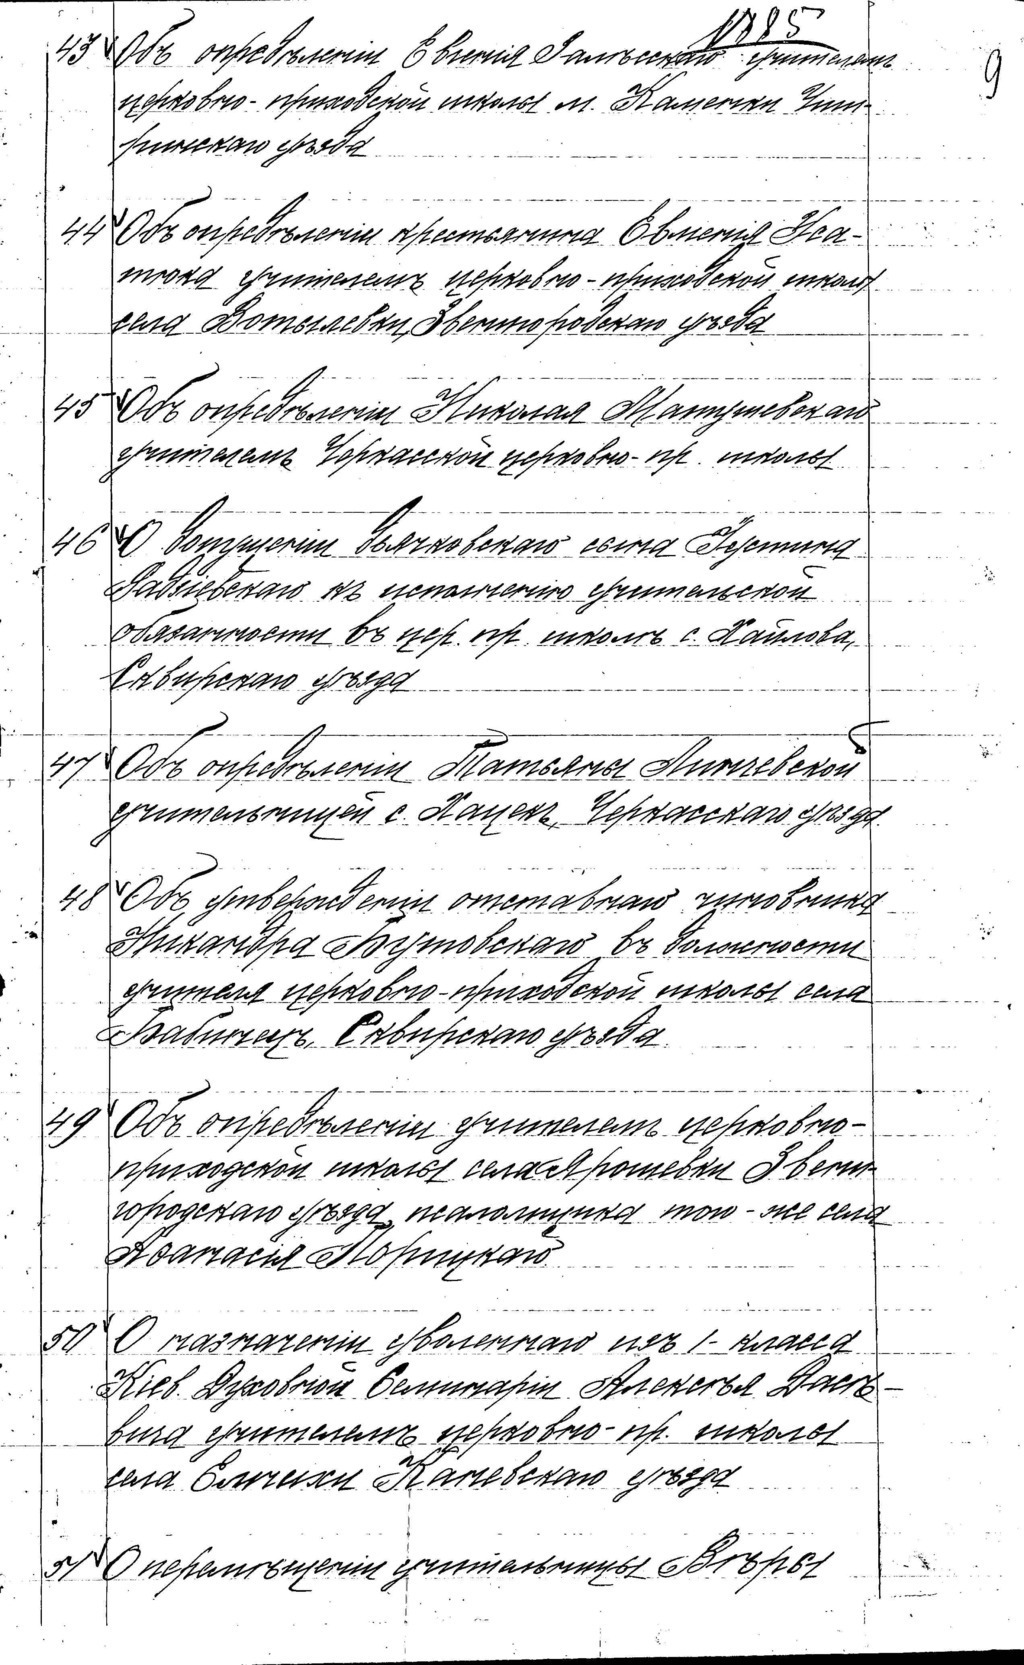 1885
9
43 Объ опредѣленіи Евгенія Залѣсскаго учителемъ
церковно-приходской школы м. Каменки Чиги-
ринскаго уѣзда
44 Объ опредѣленіи крестьянина Евгенія Иса-
тюка учителемъ церковно-приходской школы
села Вотылевки, Звенигородскаго уѣзда
45 Объ опредѣленіи Николая Матушевскаго
учителемъ Черкасской церковно-пр. школы
46 О допущеніи дьячковскаго сына Іустина
къ исполненію учительской
обязанности въ цер. пр. школѣ с. Хаилова,
Сквирскаго уѣзда
47 Объ опредѣленіи Татьяны Линчевской
учительницей с. Хацекъ, Черкасскаго уѣзда
48 Объ утвержденіи отставнаго чиновника
Никандра Бутовскаго въ должности
учителя церковно-приходской школы села
Бабинецъ, Сквирскаго уѣзда
49 Объ опредѣленіи учителемъ церковно-
приходской школы села Ярошевки Звени-
городскаго уѣзда псаломщика того-же села
Аѳанасія Порицкаго
50 О назначеніи уволеннаго изъ 1-класса
Кіев. Духовной Семинаріи Алексѣя
учителемъ церковно-пр. школы
села Емчихи Каневскаго уѣзда
51 О перемѣщеніи учительницы Вѣры